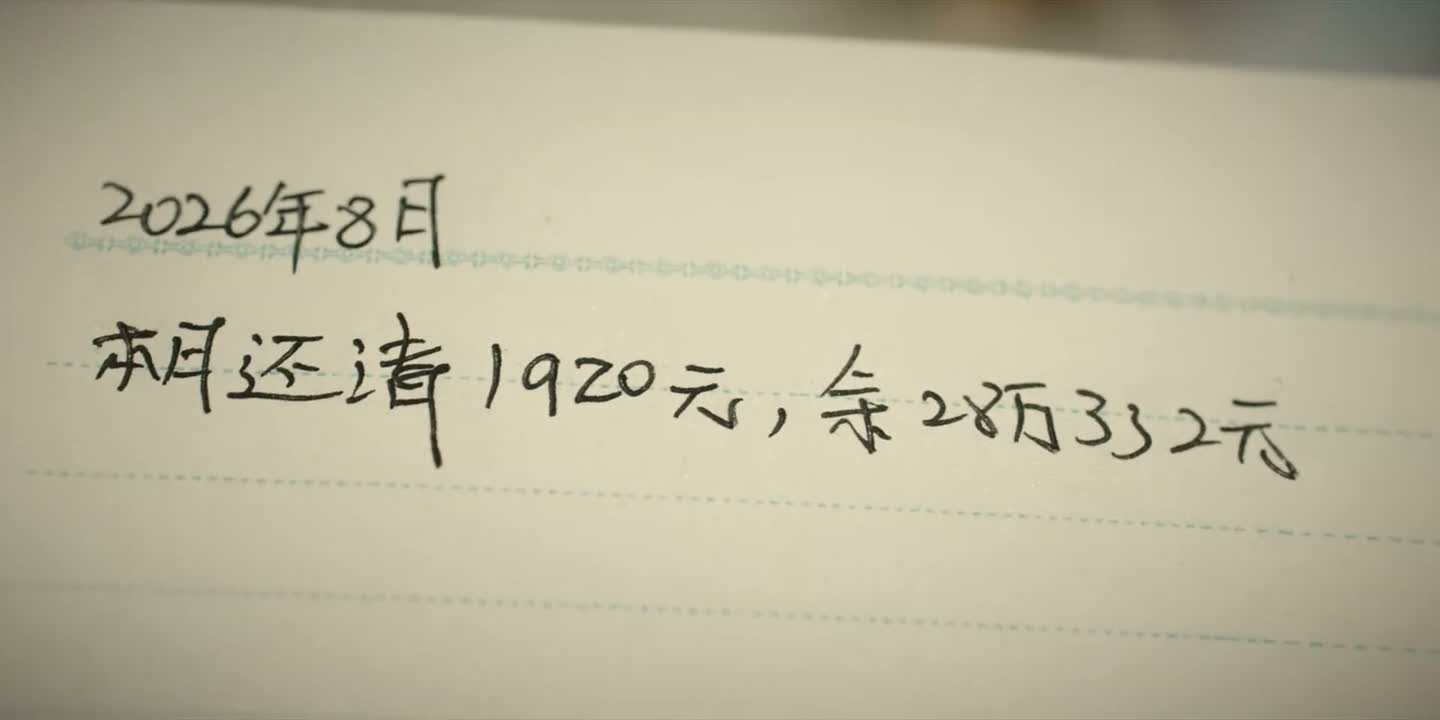 2026年8月
本月还清1920元，余28万332元